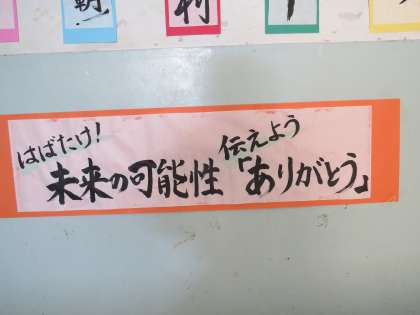 朝
利
はばたけ!
未来の可能性
伝えよう
「ありがとう」